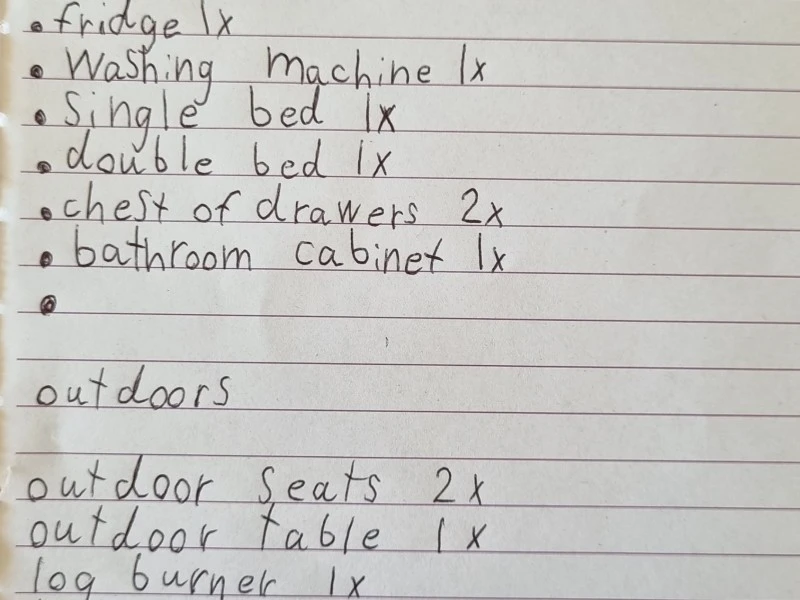 • fridge 1x
• Washing machine 1x
• Single bed 1x
• double bed 1x
• chest of drawers 2x
• bathroom cabinet 1x
•
outdoors
outdoor seats 2x
outdoor table 1x
log burner 1x